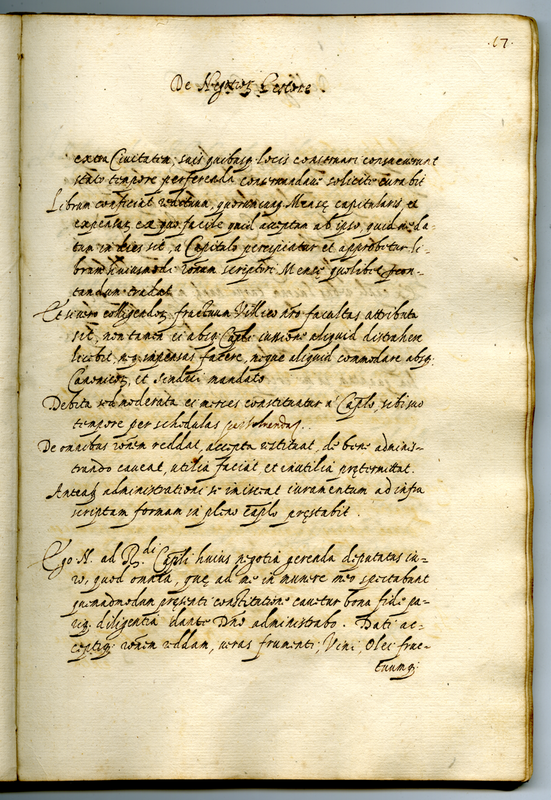 .67.
De Negotioꝝ Gestore
extra Ciuitatem, suis quibusq locis conseruari consueuerunt
stato tempore perferenda conseruandaue solicite curabit
Librum conficiet redituum, quorumcunq Mensę capitularis, et
expensaꝝ ex quo facile quid acceptum ab ipso, quid ue da-
tum in dies sit, a Capitulo perspiciatur et approbetur li-
brum huiusmodi rōnum scriptori Mense quolibet
tandum tradet
Et si uero colligendoꝝ fructuum Villico nrō facultas attributa
sit, non tamen ei absq Caplī iussione aliquid distrahere
licebit, neq impensas facere, neque aliquid commodare absq
Canonicoꝝ, et Sindici mandato
Debita sed moderata ei merces constituatur a Caplō, sibi suo
tempore per schedulas persoluendaꝫ.
De omnibus rōnem reddat, accepta restituat, de bene adminis-
trando caueat, utilia faciat et inutilia prętermittat.
Anteaꝗ administrationi se imisceat iuramentum ad infra
scriptam formam in pleno Caplō pręstabit.
Ego N. ad R.di Caplī huius negotia gerenda deputatus iu-
ro, quod omnia, que ad me in munere meo spectabunt
quemadmodum pręsenti constitutione cauetur bona fide pa-
riq diligentia dante Dn̄o administrabo. Dati ac-
ceptiq rōnem reddam, ueras frumenti, Vini, Olei fruc-
tuumq